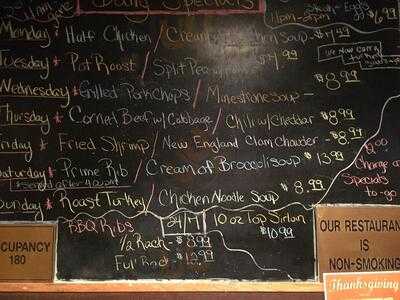 Daily Specials
Steak & Eggs
11pm-2pm $6.99
Monday * Half Chicken / Creamy Chicken Soup - $7.49
we now carry
Tuesday * Pot Roast / Split Pea $7.49
Wednesday * Grilled Pork Chops / Minestione Soup - $8.99
Thursday * Cornet Beef w/ Cabbage / Chili w/ Cheddar $8.99
Friday * Fried Shrimp / New England Clam Chauder - $8.99
Saturday * Prime Rib / Cream of Broccoli Soup $13.99
*served after 4
Sunday * Roast Turkey / Chicken Noodle Soup $8.99
$2.00
Charge on
Specials
to-go
BBQ Ribs 24/7 10 oz Top Sirloin
$10.99
1/2 Rack - $8.99
Full Rack - $12.99
OCCUPANCY
180
OUR RESTAURANT
IS
NON-SMOKING
Thanksgiving